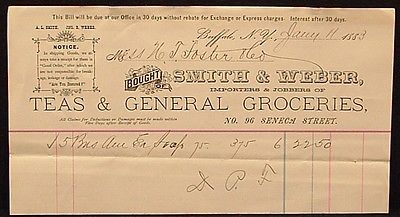 This Bill will be due at our Office in 30 days without rebate for Exchange or Express charges. Interest after 30 days.
A. L. SMITH. JNO. R. WEBER.
NOTICE.
In shipping Goods, we always take a receipt for them in "Good Order," after which we are not responsible for breakage, leakage or damage.
"Are You Insured?"
Buffalo, N. Y. Jany 11 1883
Mess H. T. Foster & Co
BOUGHT OF
SMITH & WEBER,
IMPORTERS & JOBBERS OF
TEAS & GENERAL GROCERIES,
All Claims for Deductions or Damages must be made within Five Days after Receipt of Goods.
NO. 96 SENECA STREET.
5 Bxs Am Soap 75 - 375 6 22 50